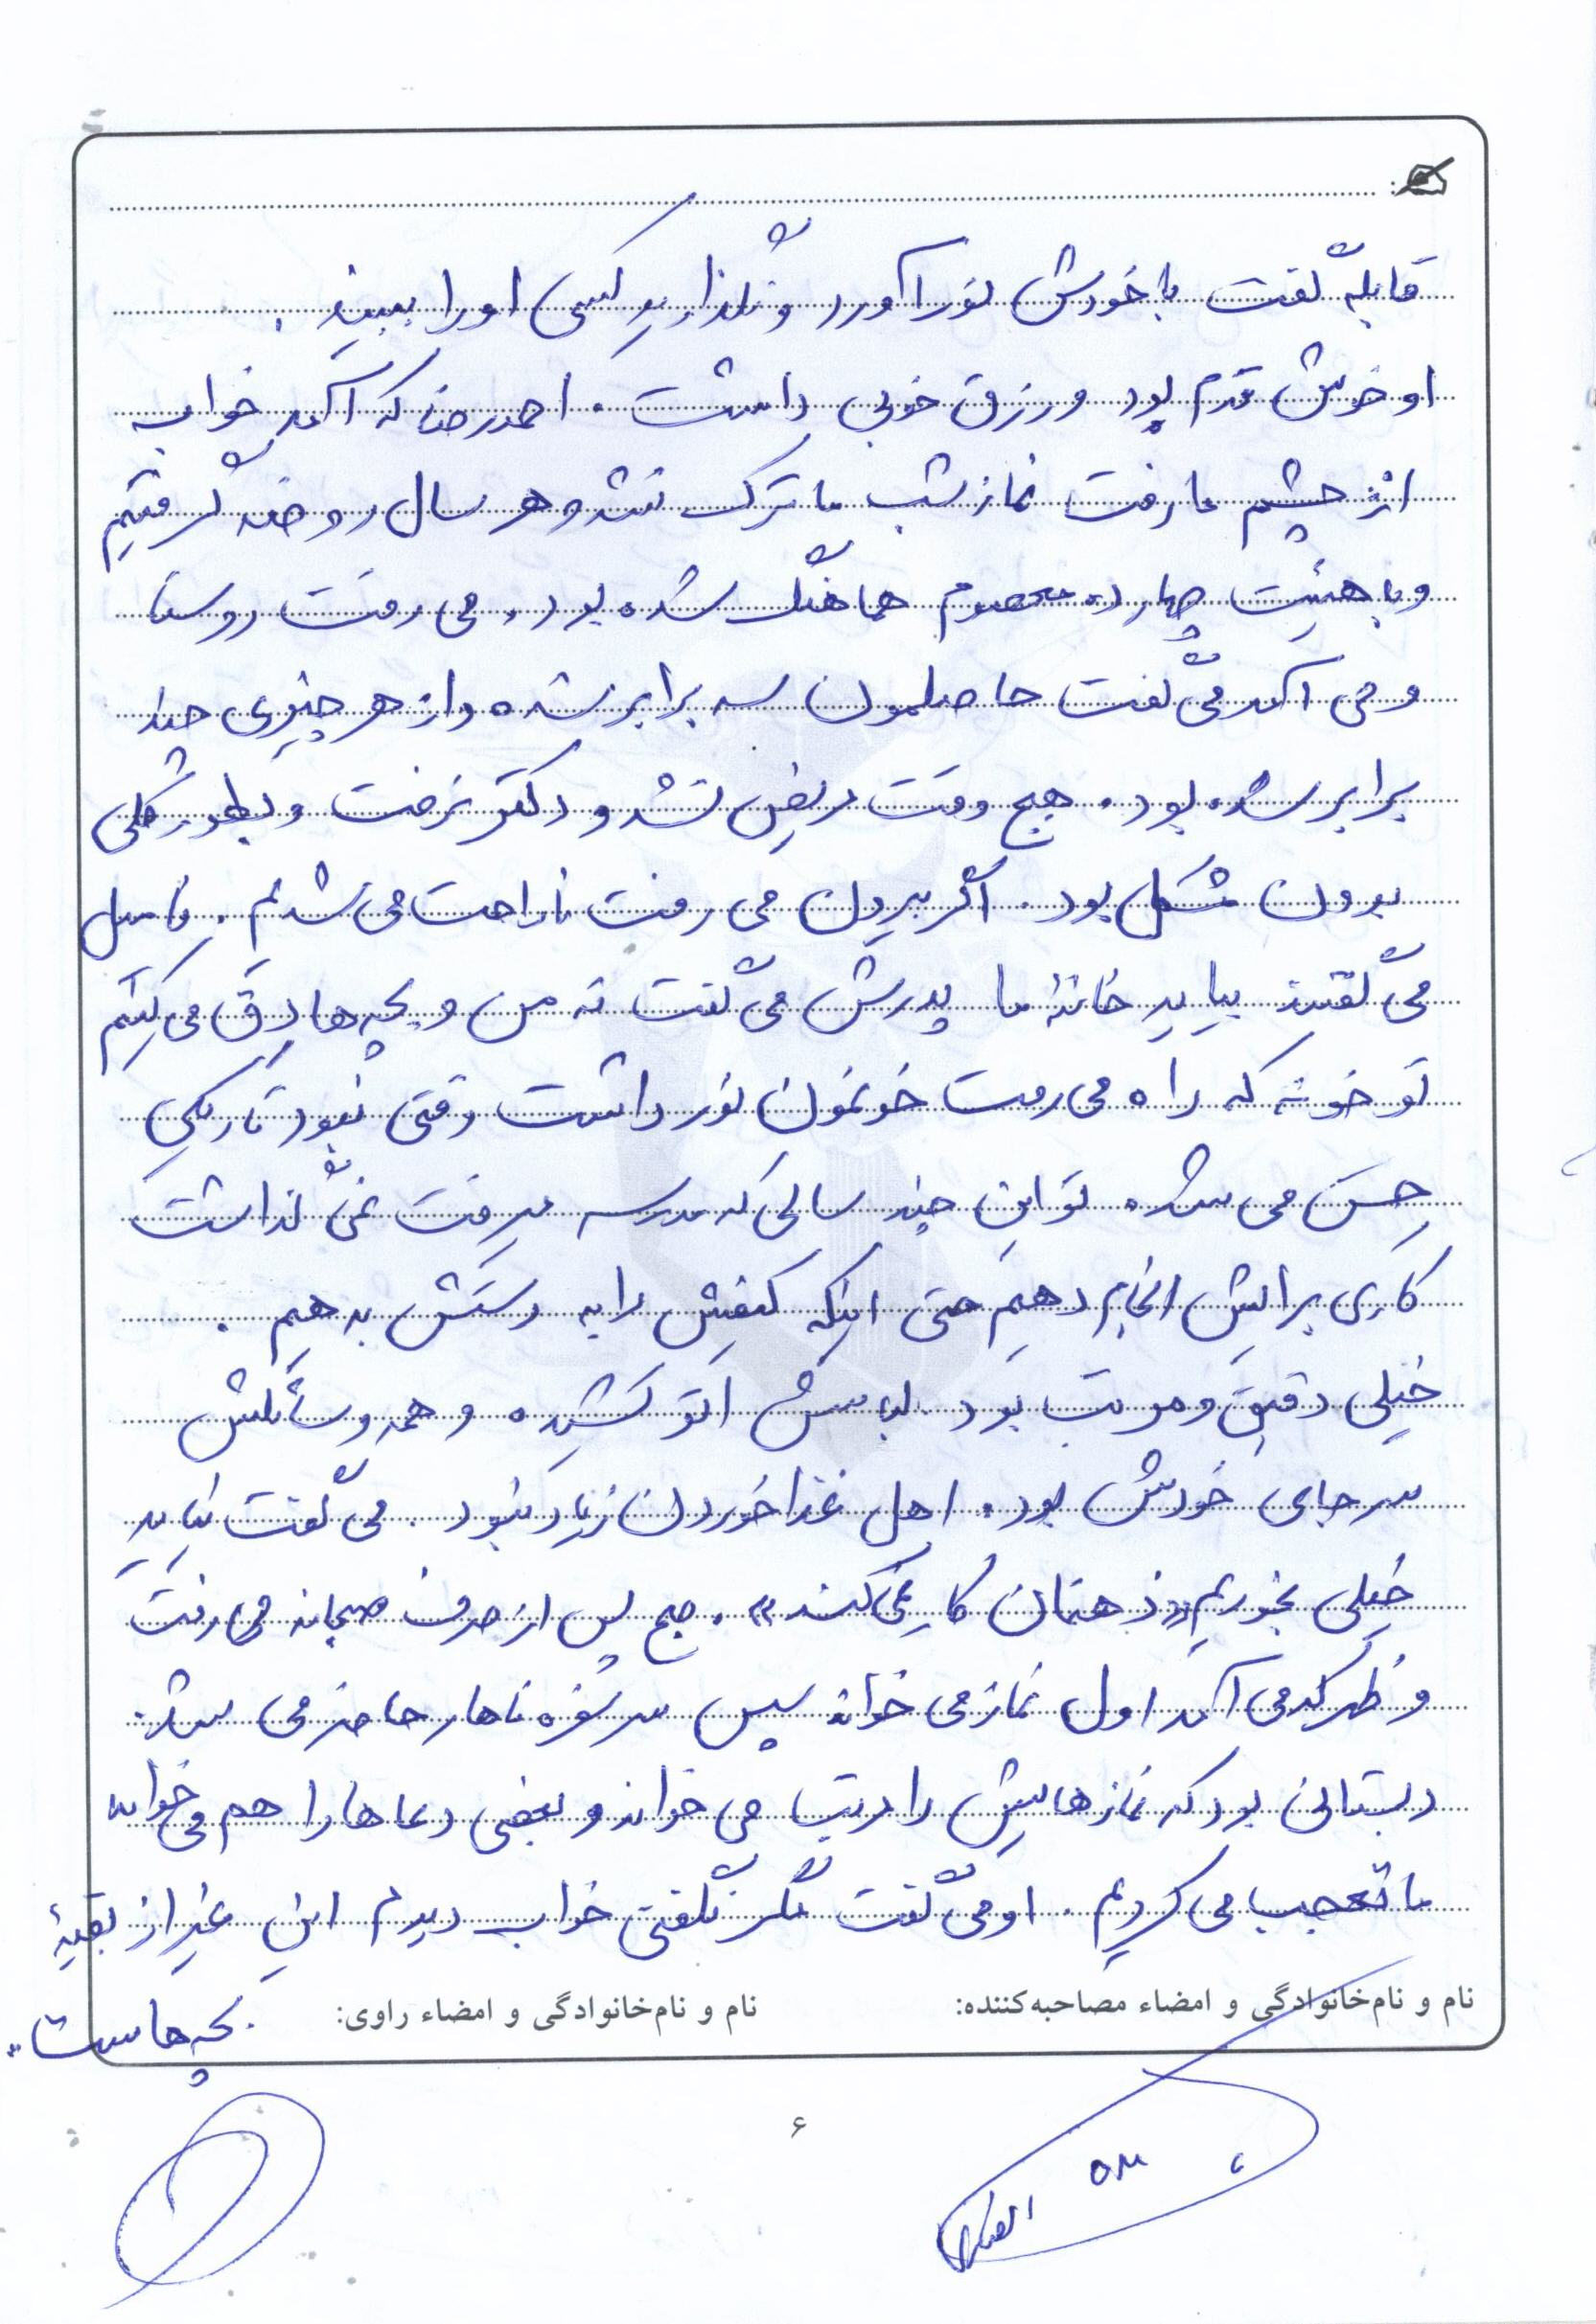 قابله گفت با خودش نور آورد و نگذارید کسی او را ببیند.
او خوش قدم بود و رزق خوبی داشت. احمدرضا که آمد خواب
از چشم ما رفت نماز شب ما ترک نشد و هر سال روضه گرفتیم
و با هیئت چهارده معصوم هماهنگ شده بود. می رفت روستا
و می آمد می گفت حاصلمون سه برابر شده و از هر چیزی چند
برابر شده بود. هیچ وقت مریض نشد و دکتر نرفت و بطور کلی
بدون مشکل بود. اگر بیرون می رفت ناراحت می شدیم. فامیل
می گفتند بیایید خانهٔ ما پدرش می گفت نه من و بچه ها دِق می کنیم
تو خونه که راه می رفت خونمون نور داشت وقتی نبود تاریکی
حس می شد. تو این چند سالی که مدرسه میرفت نمی گذاشت
کاری برایش انجام دهیم حتی اینکه کیفش را به دستش بدهیم.
خیلی دقیق و مرتب بود. لباسش اتو کشیده و همه وسائلش
سر جای خودش بود. اهل غذا خوردن زیاد نبود. می گفت نباید
خیلی بخوریم «ذهنمان کار نمی کند». صبح پس از صرف صبحانه می رفت
و ظهر که می آمد اول نماز می خواند سپس سر سفره ناهار حاضر می شد.
دبستانی بود که نمازهایش را مرتب می خواند و بعضی دعاها را هم می خواند
ما تعجب می کردیم. او می گفت مگر نگفتی خواب دیدم این غیر از بقیهٔ
بچه هاست.
نام و نام‌خانوادگی و امضاء مصاحبه‌کننده:
نام و نام‌خانوادگی و امضاء راوی:
۶